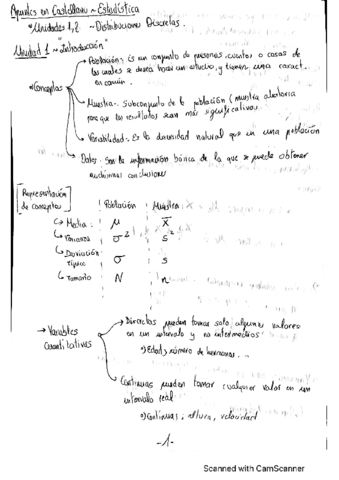 Apuntes en Castellano ~ Estadística
*Unidades 1, 2 ~ Distribuciones Discretas.
Unidad 1 ~ "Introducción"
*Conceptos
Población: Es un conjunto de personas, eventos o cosas de
las cuales se desea hacer un estudio, y tienen una caract.
en común.
Muestra: Subconjunto de la población (muestra aleatoria
para que los resultados sean más significativos)
Variabilidad: Es la diversidad natural que en una población
Datos: Son la información básica de la que se puede obtener
conclusiones
Representación
de conceptos
Población Muestra
Media: μ x̄
Varianza σ² s²
Desviación
típica σ s
Tamaño N n
→ Variables
Cuantitativas
Discretas pueden tomar solo algunos valores
en un intervalo y no intermedios
Edad, número de hermanos...
Continuas pueden tomar cualquier valor en un
intervalo real
Continuas: altura, velocidad
-1-
Scanned with CamScanner